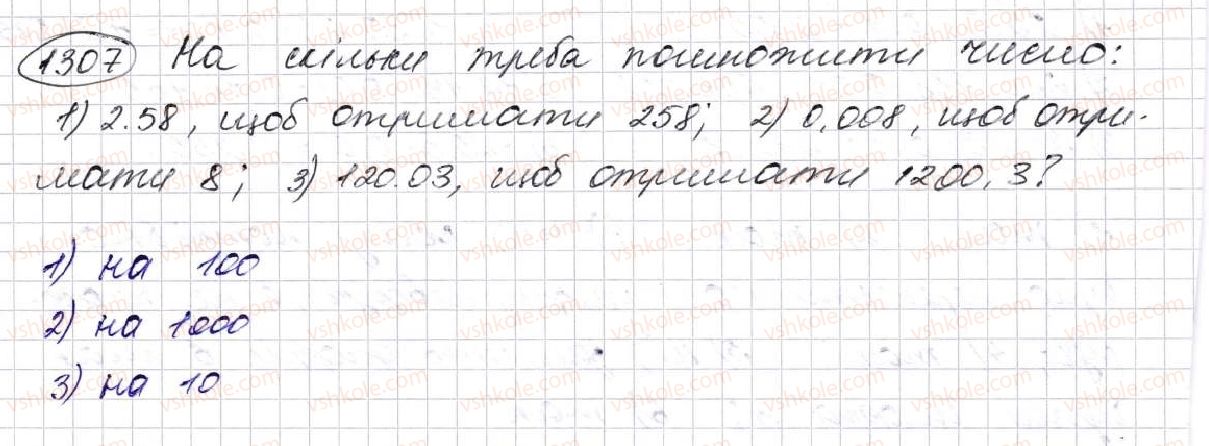 1307 На скільки треба помножити число:
1) 2.58, щоб отримати 258; 2) 0,008, щоб отри-
мати 8; 3) 120.03, щоб отримати 1200,3?
1) на 100
2) на 1000
3) на 10